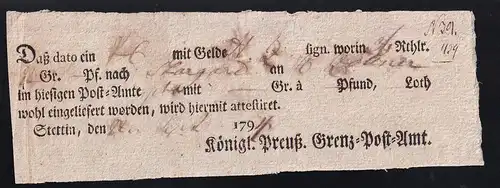 Daß dato ein mit Gelde sign. worin Rthlr.
Gr. Pf. nach Stargard an
im hiesigen Post-Amte mit Gr. à Pfund, Loth
wohl eingeliefert worden, wird hiermit attestiret.
Stettin, den 179
Königl. Preuß. Grenz-Post-Amt.